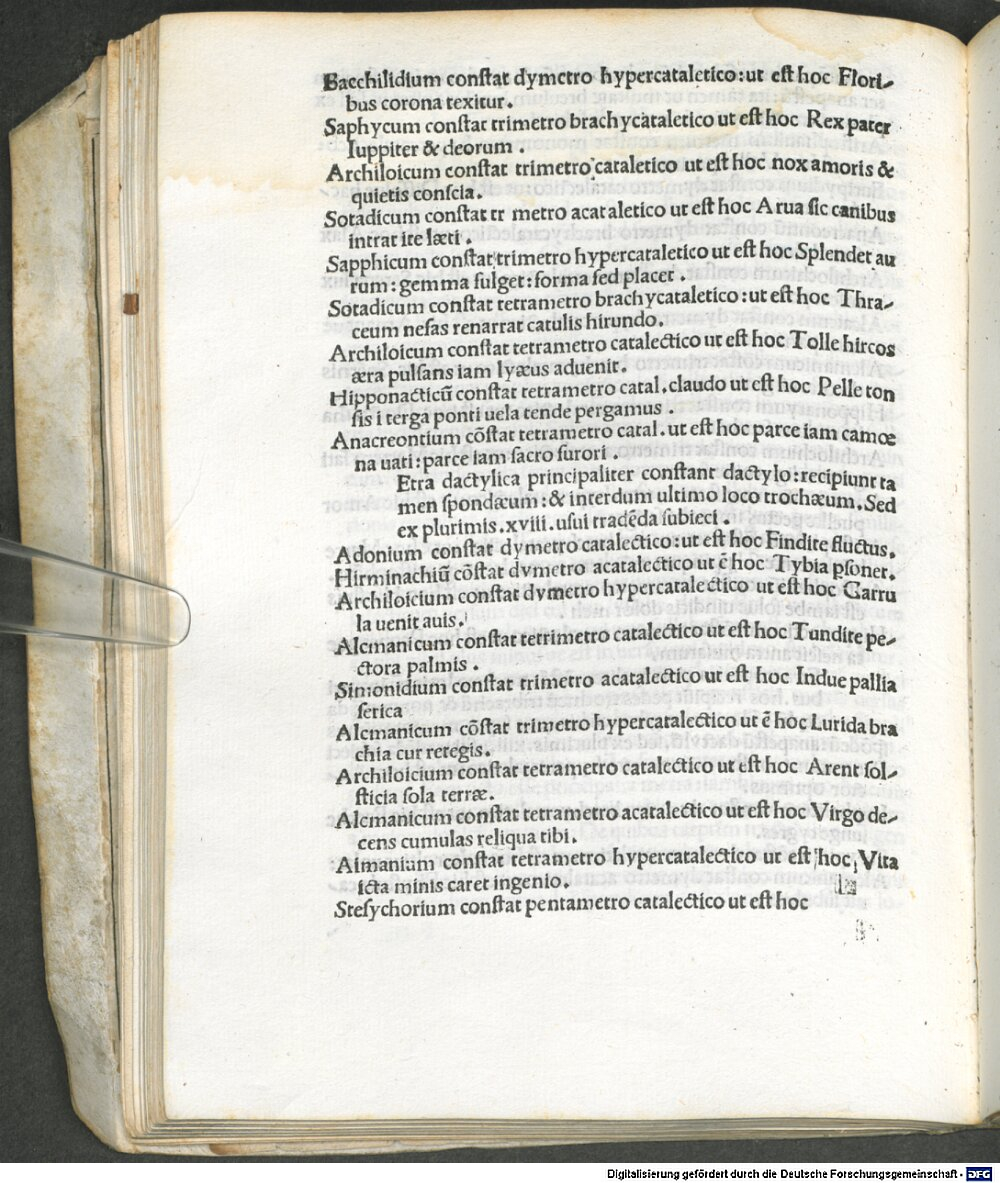 Bacchilidium constat dymetro hypercataletico: ut est hoc Flori-
bus corona texitur.
Saphycum constat trimetro brachycataletico ut est hoc Rex pater
Iuppiter & deorum.
Archiloicum constat trimetro cataletico ut est hoc nox amoris &
quietis conscia.
Sotadicum constat tr metro acataletico ut est hoc Arua sic canibus
intrat ite læti.
Sapphicum constat trimetro hypercataletico ut est hoc Splendet au
rum: gemma fulget: forma sed placet.
Sotadicum constat tetrametro brachycataletico: ut est hoc Thra-
ceum nefas renarrat catulis hirundo.
Archiloicum constat tetrametro catalectico ut est hoc Tolle hircos
æra pulsans iam lyæus aduenit.
Hipponacticū constat tetrametro catal. claudo ut est hoc Pelle ton
sis i terga ponti uela tende pergamus.
Anacreontium cōstat tetrametro catal. ut est hoc parce iam camœ
na uati: parce iam sacro furori.
Etra dactylica principaliter constant dactylo: recipiunt ta
men spondæum: & interdum ultimo loco trochæum. Sed
ex plurimis. xviii. usui tradēda subieci.
Adonium constat dymetro catalectico: ut est hoc Findite fluctus.
Hirminachiū cōstat dymetro acatalectico ut ē hoc Tybia psonet.
Archiloicium constat dymetro hypercatalectico ut est hoc Garru
la uenit auis.
Alcmanicum constat tetrimetro catalectico ut est hoc Tundite pe-
ctora palmis.
Simonidium constat trimetro acatalectico ut est hoc Indue pallia
serica
Alcmanicum cōstat trimetro hypercatalectico ut ē hoc Lurida bra
chia cur retegis.
Archiloicium constat tetrametro catalectico ut est hoc Arent sol-
sticia sola terræ.
Alcmanicum constat tetrametro acatalectico ut est hoc Virgo de-
cens cumulas reliqua tibi.
Almanium constat tetrametro hypercatalectico ut est hoc Vita
icta minis caret ingenio.
Stesychorium constat pentametro catalectico ut est hoc
Digitalisierung gefördert durch die Deutsche Forschungsgemeinschaft - DFG